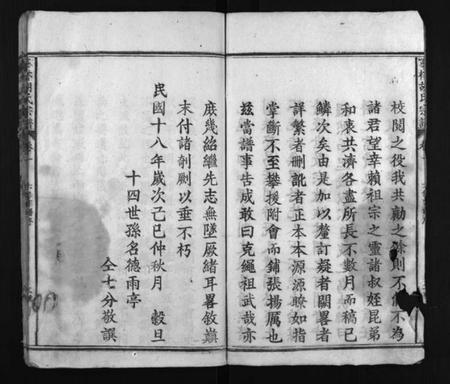 校閱之役我共勷之餘則不佞不為
諸君望幸賴祖宗之靈諸叔姪昆弟
和衷共濟各盡所長不數月而稿已
鱗次矣由是加以釐訂疑者闕畧者
詳繁者刪訛者正本本源源瞭如指
掌斷不至攀援附會而鋪張揚厲也
兹當譜事告成敢曰克繩祖武哉亦
庶幾紹繼先志無墜厥緒耳畧敘巔
末付諸剞劂以垂不朽
民國十八年歲次己巳仲秋月 穀旦
十四世孫名德雨亭
仝七分敬譔